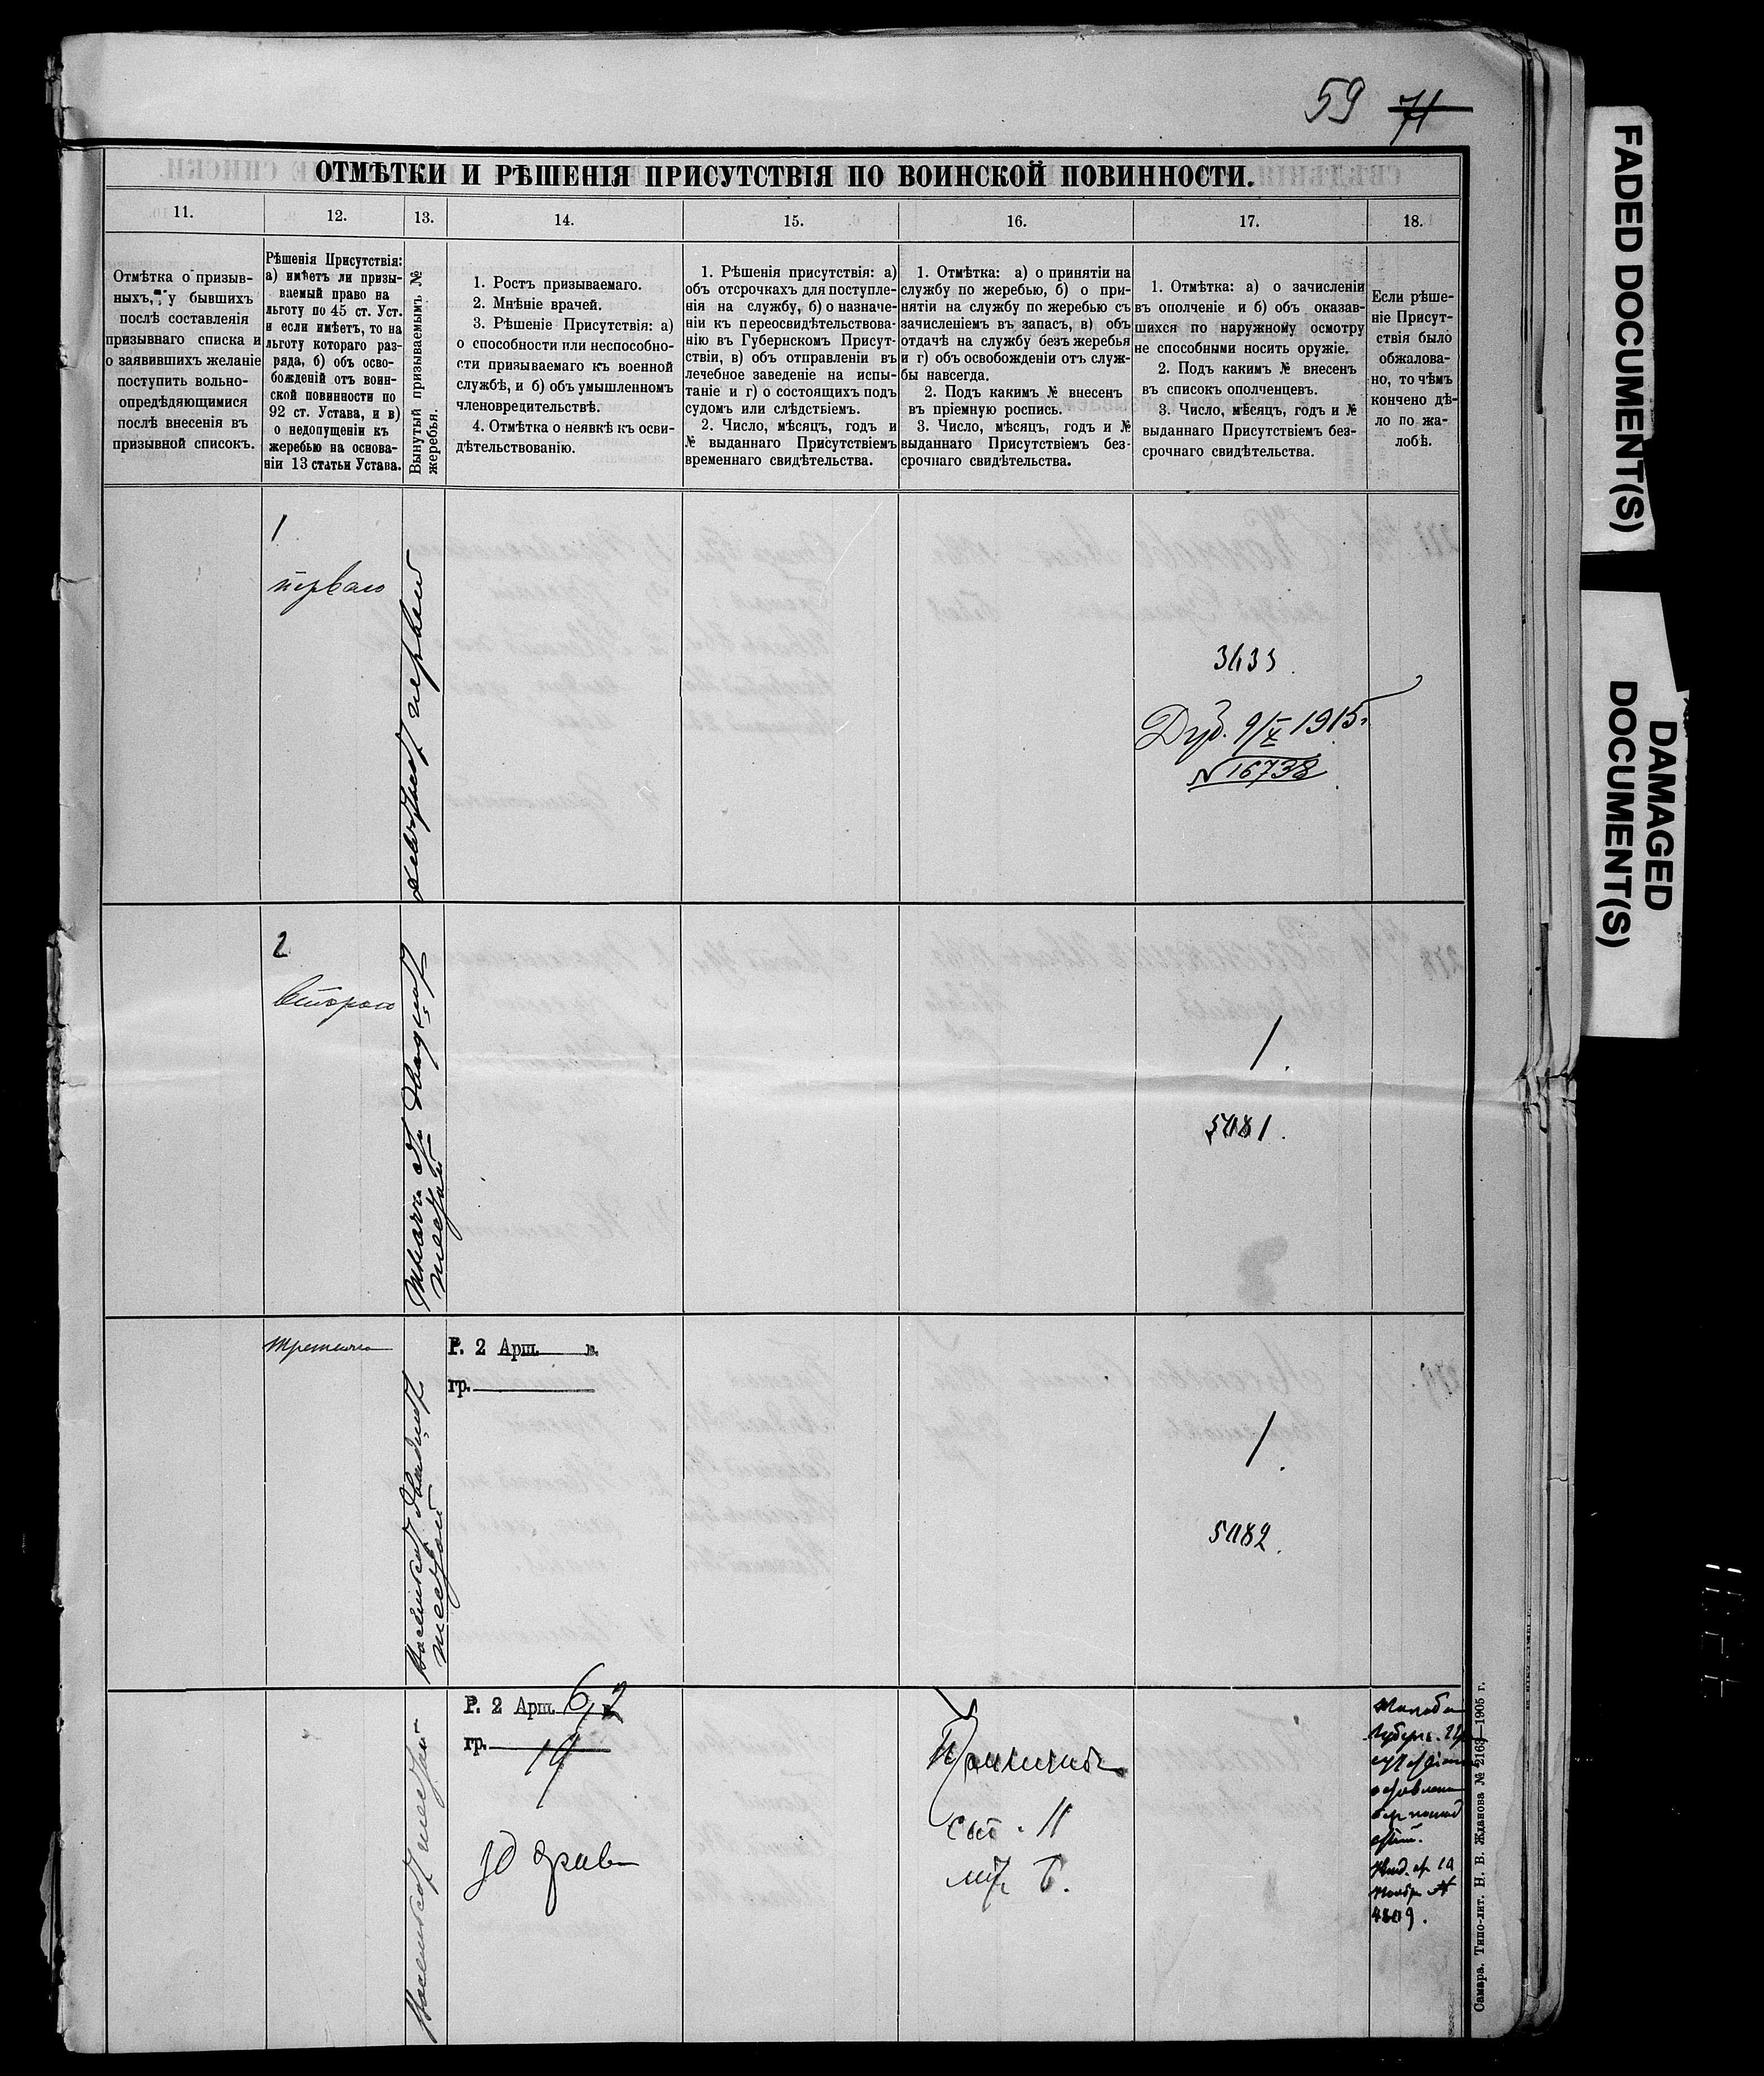 59 71
ОТМѢТКИ И РѢШЕНІЯ ПРИСУТСТВІЯ ПО ВОИНСКОЙ ПОВИННОСТИ.
11.
12.
13.
14.
15.
16.
17.
18.
Отмѣтка о призыв-
ныхъ, у бывшихъ
послѣ составленія
призывнаго списка и
о заявившихъ желаніе
поступить вольно-
опредѣдяющимися
послѣ внесенія въ
призывной списокъ.
Рѣшенія Присутствія:
а) имѣетъ ли призы-
ваемый право на
льготу по 45 ст. Уст.
и если имѣетъ, то на
льготу котораго раз-
ряда, б) объ осво-
божденій отъ воин-
ской повинности по
92 ст. Устава, и в)
о недопущеніи къ
жеребью на основа-
ніи 13 статьи Устава.
Вынутый призываемымъ №
жеребья.
1. Ростъ призываемаго.
2. Мнѣніе врачей.
3. Рѣшеніе Присутствія: а)
о способности или неспособно-
сти призываемаго къ военной
службѣ, и б) объ умышленномъ
членовредительствѣ.
4. Отмѣтка о неявкѣ къ осви-
дѣтельствованію.
1. Рѣшенія присутствія: а)
объ отсрочкахъ для поступле-
нія на службу, б) о назначе-
ніи къ переосвидѣтельствова-
нію въ Губернскомъ Присут-
ствіи, в) объ отправленіи въ
лечебное заведеніе на испы-
таніе и г) о состоящихъ подъ
судомъ или слѣдствіемъ.
2. Число, мѣсяцъ, годъ и
№ выданнаго Присутствіемъ
временнаго свидѣтельства.
1. Отмѣтка: а) о принятіи на
службу по жеребью, б) о при-
нятіи на службу по жеребью съ
зачисленіемъ въ запасъ, в) объ
отдачѣ на службу безъ жеребья
и г) объ освобожденіи отъ служ-
бы навсегда.
2. Подъ какимъ № внесенъ
въ пріемную роспись.
3. Число, мѣсяцъ, годъ и №
выданнаго Присутствіемъ без-
срочнаго свидѣтельства.
1. Отмѣтка: а) о зачисленіи
въ ополченіе и б) объ оказав-
шихся по наружному осмотру
не способными носить оружіе.
2. Подъ какимъ № внесенъ
въ списокъ ополченцевъ.
3. Число, мѣсяцъ, годъ и №
выданнаго Присутствіемъ без-
срочнаго свидѣтельства.
Если рѣше-
ніе Присут-
ствія было
обжалова-
но, то чѣмъ
кончено дѣ-
ло по жа-
лобѣ.
1
перваго
первый
3433.
Дуб. 9/X 1915 г.
№ 16738
2
второго
двадцать
шестой
1.
5081.
третьяго
Р. 2 Арш. в.
гр.
восемьсот двадцать
шестой
1.
5082.
Р. 2 Арш. 6,2 в.
гр. 19
здоровъ
восемьсот шестой
Принятъ
4809.
Самара. Типо-лит. Н. В. Жданова № 2163—1905 г.
FADED DOCUMENT(S)
DAMAGED
DOCUMENT(S)